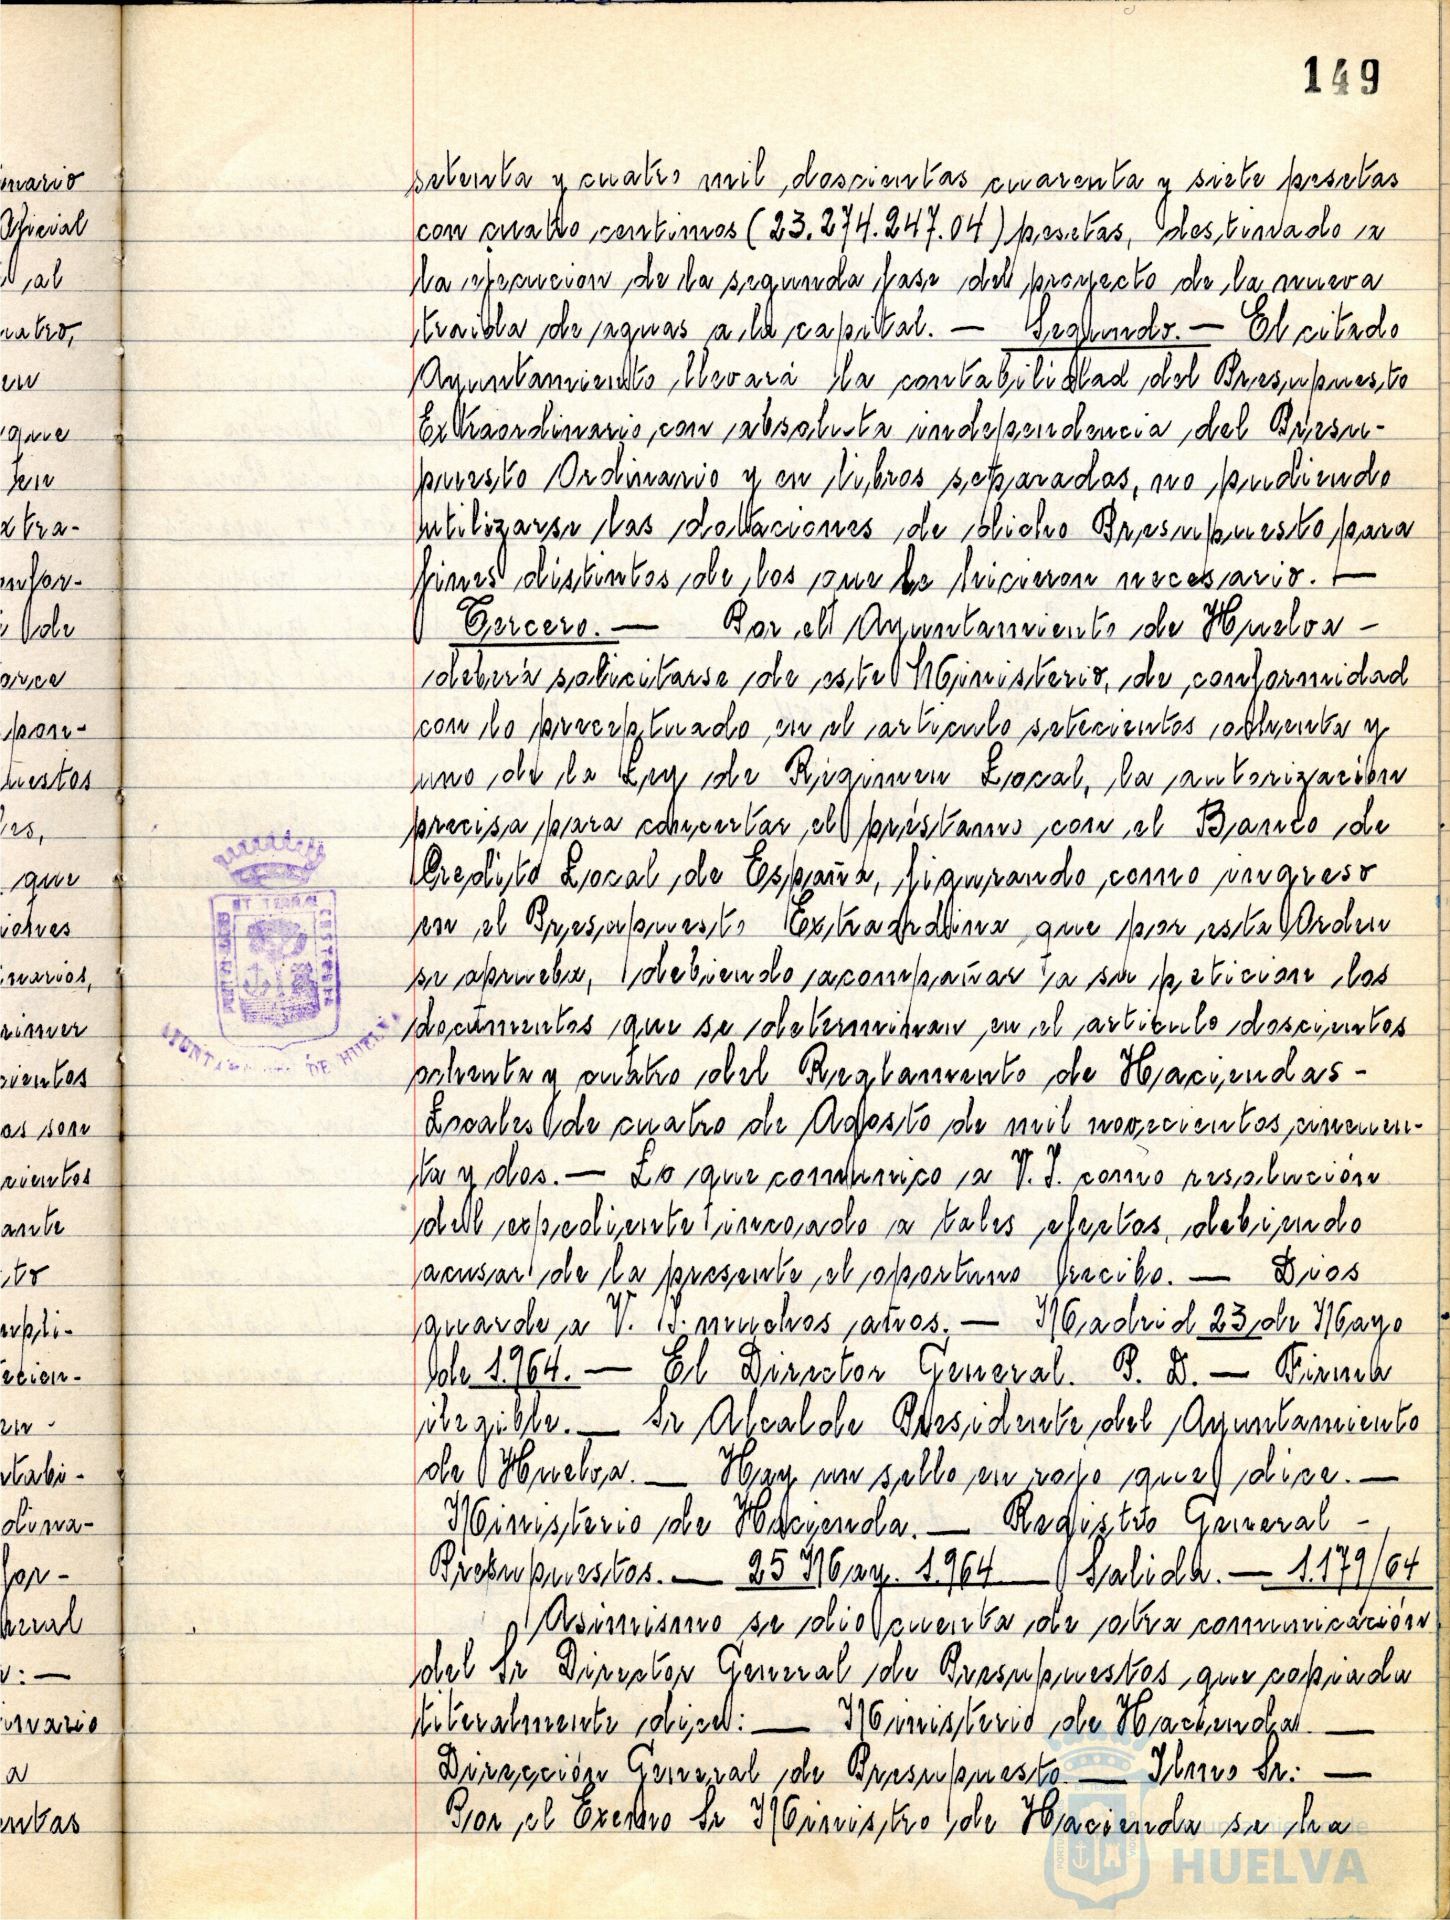 149
setenta y cuatro mil doscientas cuarenta y siete pesetas
con cuatro centimos (23.274.247.04) pesetas, destinado a
la ejecucion de la segunda fase del proyecto de la nueva
traida de aguas a la capital. — Segundo. — El citado
Ayuntamiento llevará la contabilidad del Presupuesto
Extraordinario con absoluta independencia del Presu-
puesto Ordinario y en libros separados, no pudiendo
utilizarse las dotaciones de dicho Presupuesto para
fines distintos de los que le hicieron necesario. —
Tercero. — Por el Ayuntamiento de Huelva -
deberá solicitarse de este Ministerio, de conformidad
con lo preceptuado en el articulo setecientos ochenta y
uno de la Ley de Regimen Local, la autorización
precisa para concertar el préstamo con el Banco de
Credito Local de España, figurando como ingreso
en el Presupuesto Extraordina que por esta Orden
se aprueba, debiendo acompañar a su peticion los
documentos que se determinan en el articulo doscientos
ochenta y cuatro del Reglamento de Haciendas -
Locales de cuatro de Agosto de mil novecientos cincuen-
ta y dos. — Lo que comunico a V. I. como resolución
del expediente incoado a tales efectos, debiendo
acusar de la presente el oportuno recibo. — Dios
guarde a V. I. muchos años. — Madrid 23 de Mayo
de 1.964. — El Director General. P. D. — Firma
ilegible. — Sr Alcalde Presidente del Ayuntamiento
de Huelva. — Hay un sello en rojo que dice. —
Ministerio de Hacienda. — Registro General -
Presupuestos. — 25 May. 1.964 — Salida. — 1.179/64
Asimismo se dio cuenta de otra comunicación
del Sr Director General de Presupuestos que copiada
literalmente dice: — Ministerio de Hacienda —
Dirección General de Presupuesto — Ilmo Sr: —
Por el Excmo Sr Ministro de Hacienda se ha
inario
Oficial
al
uatro,
en
que
ten
xtra-
onfor-
de
arce
pon-
uestos
es,
que
iones
inarios,
rimer
cientos
as son
cientos
ante
to
upli-
ecien-
en -
ntabi-
dina-
for-
neral
: —
inario
a
entas
AYUNTAMIENTO DE HUELVA
HUELVA